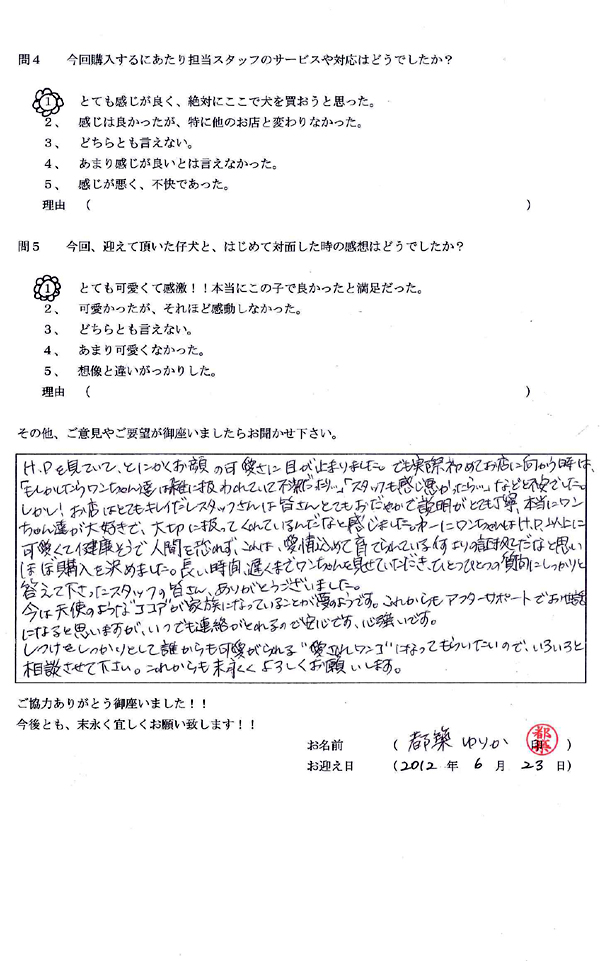 問４　今回購入するにあたり担当スタッフのサービスや対応はどうでしたか？
１、　とても感じが良く、絶対にここで犬を買おうと思った。
２、　感じは良かったが、特に他のお店と変わりなかった。
３、　どちらとも言えない。
４、　あまり感じが良いとは言えなかった。
５、　感じが悪く、不快であった。
理由　（　　　　　　　　　　）
問５　今回、迎えて頂いた仔犬と、はじめて対面した時の感想はどうでしたか？
１、　とても可愛くて感激！！本当にこの子で良かったと満足だった。
２、　可愛かったが、それほど感動しなかった。
３、　どちらとも言えない。
４、　あまり可愛くなかった。
５、　想像と違いがっかりした。
理由　（　　　　　　　　　　）
その他、ご意見やご要望が御座いましたらお聞かせ下さい。
H.Pを見ていて、とにかくお顔の可愛さに目が止まりました。でも実際、初めてお店に向かう時は、
「もしかしたらワンちゃん達は雑に扱われていて不潔だったら…」「スタッフも感じ悪かったら…」などと不安でした。
しかし！お店はとてもキレイだしスタッフさんは皆さんとてもおだやかで説明がとても丁寧、本当にワン
ちゃん達が大好きで、大切に扱ってくれているんだなと感じました。ワンちゃんはH.P.以上に
可愛くて健康そうで人間を恐れず、これは、愛情込めて育てられている何よりの証拠だなと思い
ほぼ購入を決めました。長い時間、遅くまでワンちゃんを見せていただき、ひとつひとつの質問にしっかりと
答えて下さったスタッフの皆さん、ありがとうございました。
今は天使のような"ココア"が家族になっていることが夢のようです。これからもアフターサポートでお世話
になると思いますが、いつでも連絡がとれるので安心です、心強いです。
しつけをしっかりとして誰からも可愛がられる"愛されワンコ"になってもらいたいので、いろいろと
相談させて下さい。これからも末永くよろしくお願いします。
ご協力ありがとう御座いました！！
今後とも、末永く宜しくお願い致します！！
お名前　（　都築 ゆりか　印　）
お迎え日　（2012 年 6 月 23 日）